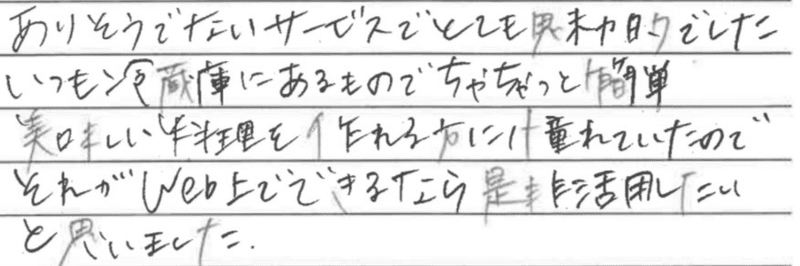 ありそうでないサービスでとても魅力的でした
いつも冷蔵庫にあるものでちゃちゃっと簡単
美味しい料理を作れる方に憧れていたので
それがWeb上でできるなら是非活用したい
と思いました.